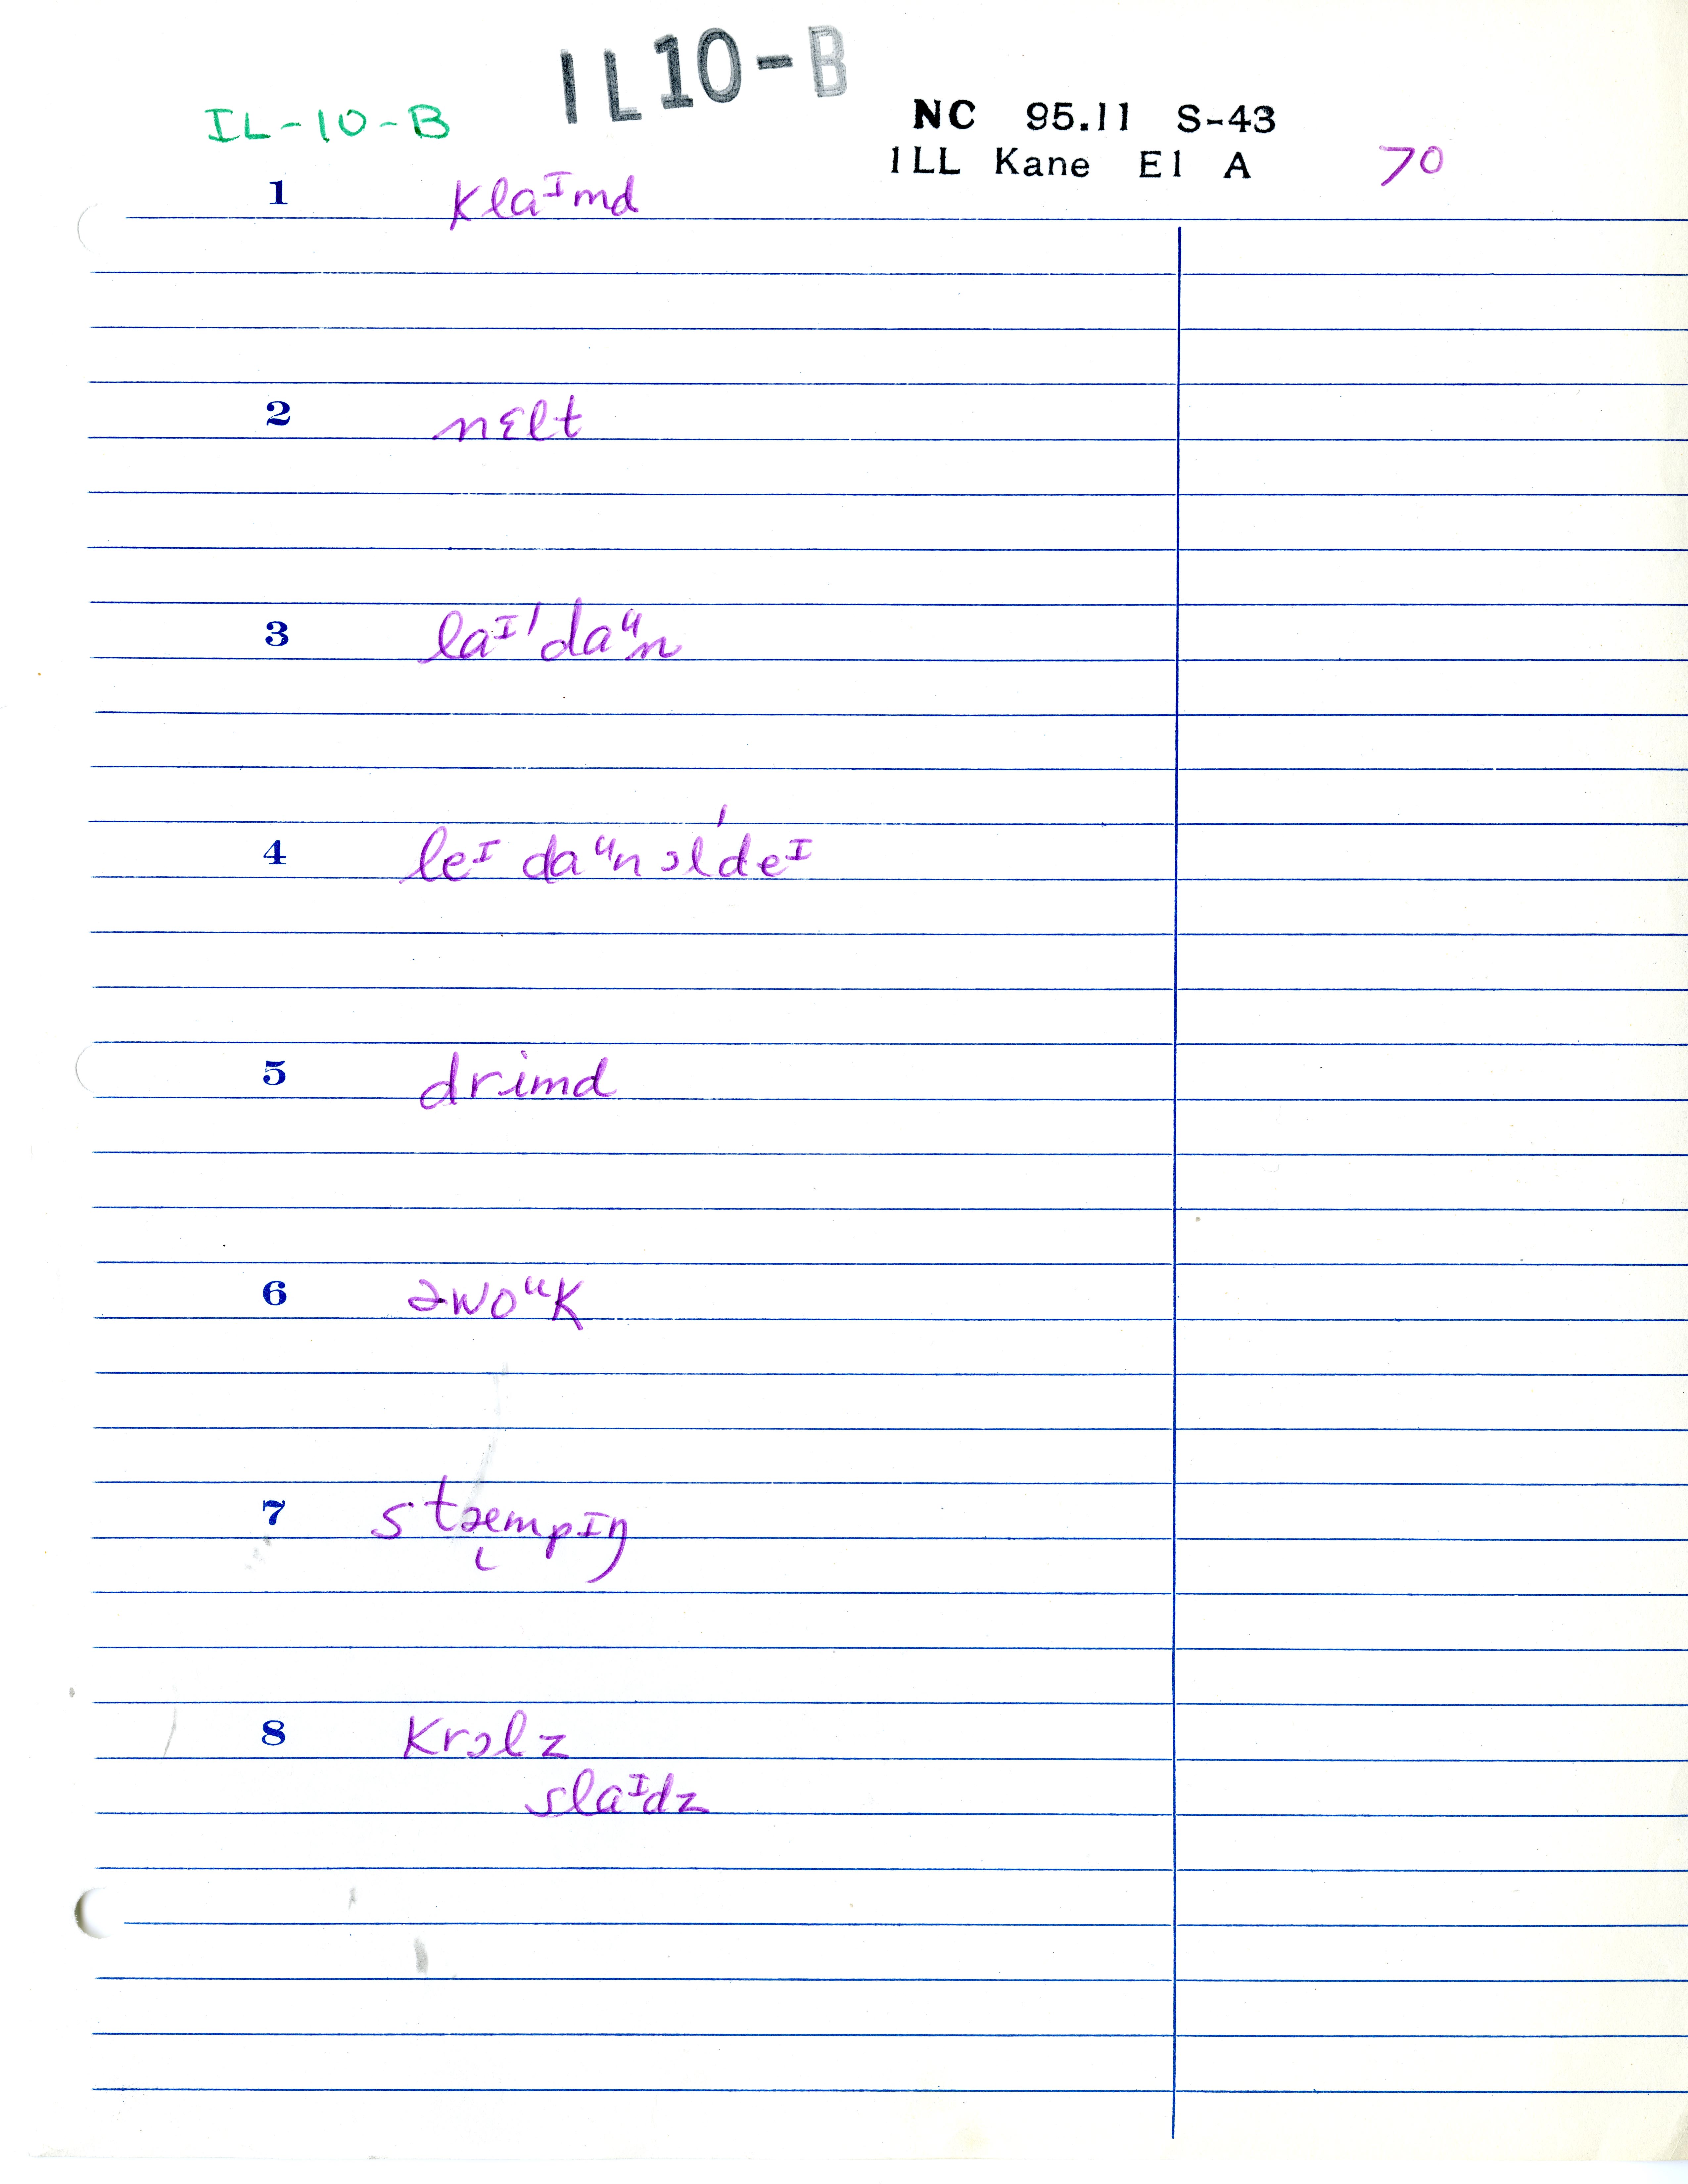 IL10-B
IL-10-B
NC 95.11 S-43
ILL Kane E1 A 70
1 klaᴵmd
2 nɛlt
3 laᴵ'daᵘn
4 leᴵ daᵘn ɔl'deᴵ
5 drimd
6 əwoᵘk
7 stæmpɪŋ
8 krɔlz
slaᴵdz